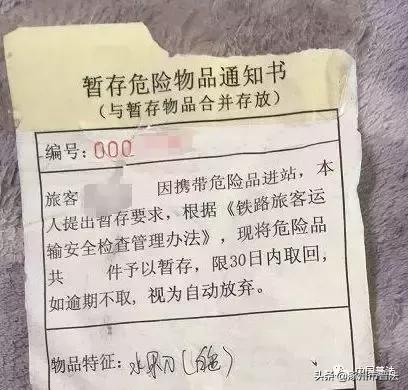 暂存危险物品通知书
(与暂存物品合并存放)
编号：000
旅客 因携带危险品进站，本
人提出暂存要求，根据《铁路旅客运
输安全检查管理办法》，现将危险品
共 件予以暂存，限30日内取回，
如逾期不取，视为自动放弃。
物品特征：水果刀（
中国普法
头条